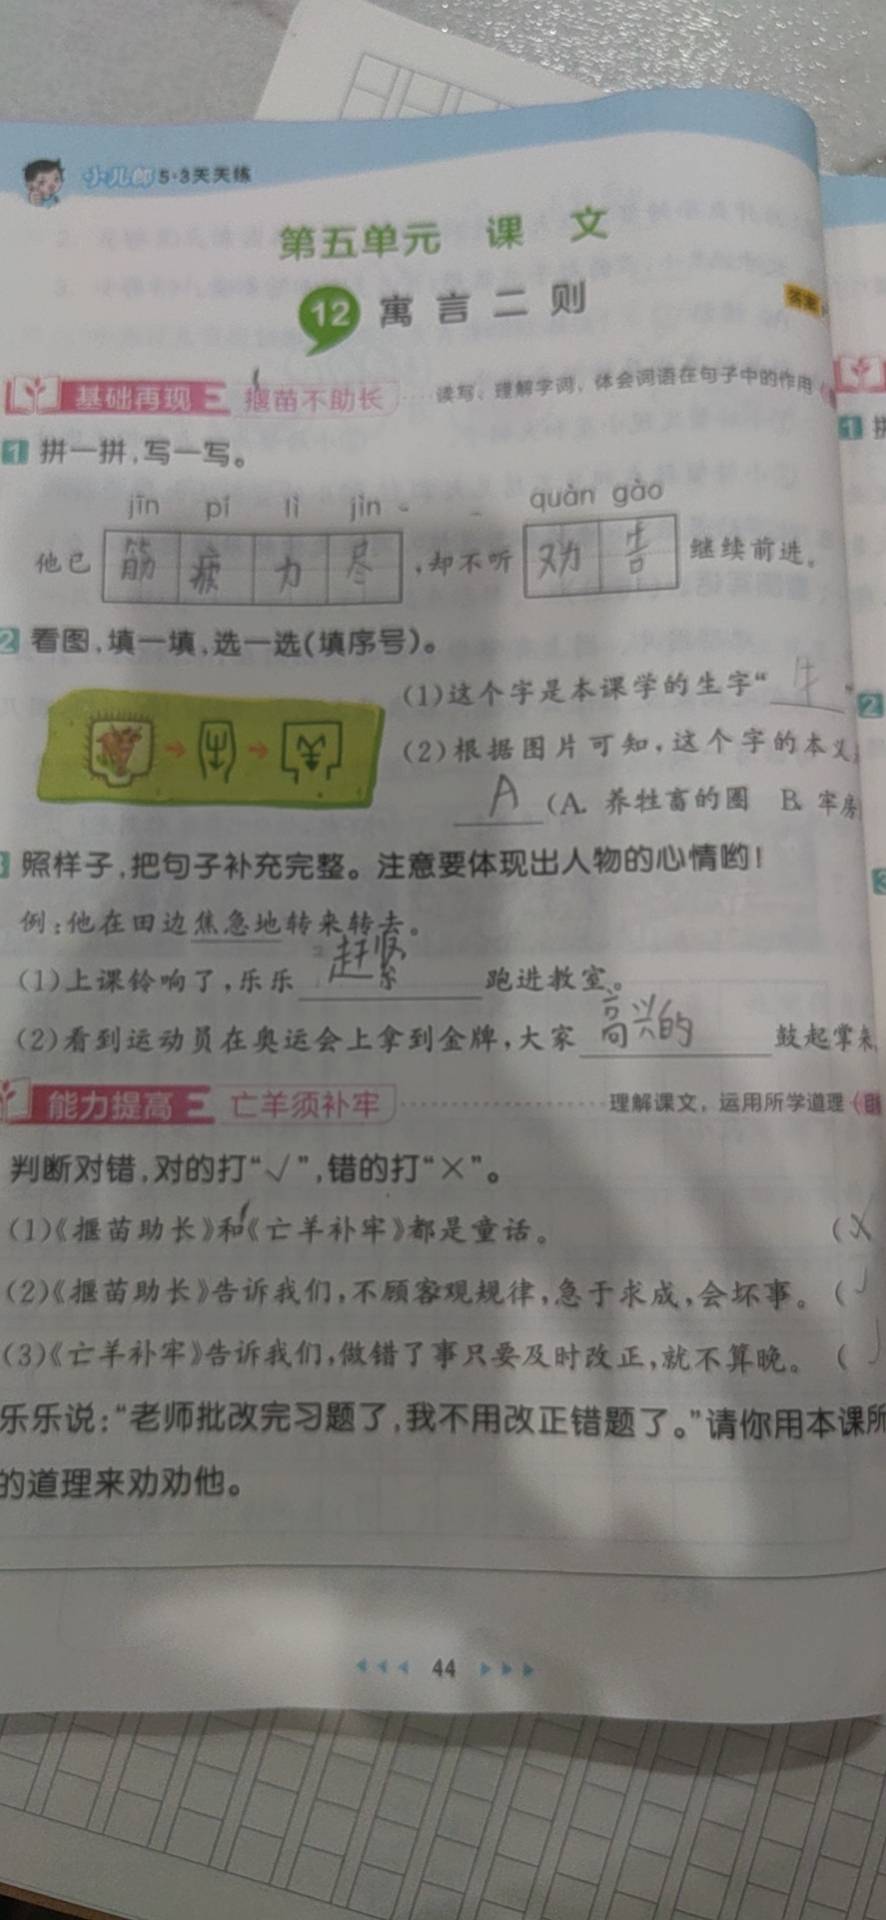 小儿郎 5·3天天练
第五单元 课文
12 寓言二则
答案
基础再现 揠苗不助长 读写、理解字词，体会词语在句子中的作用
1 拼一拼，写一写。
jīn pí lì jìn quàn gào
他已 筋疲力尽，却不听 劝告 继续前进。
2 看图，填一填，选一选(填序号)。
(1)这个字是本课学的生字“牛”
(2)根据图片可知，这个字的本义
A (A. 养牲畜的圈 B. 牢房
照样子，把句子补充完整。注意要体现出人物的心情哟！
例：他在田边焦急地转来转去。
(1)上课铃响了，乐乐 赶紧 跑进教室。
(2)看到运动员在奥运会上拿到金牌，大家 高兴的 鼓起掌来
能力提高 亡羊须补牢 理解课文，运用所学道理
判断对错，对的打“√”，错的打“×”。
(1)《揠苗助长》和《亡羊补牢》都是童话。 (×
(2)《揠苗助长》告诉我们，不顾客观规律，急于求成，会坏事。 (√
(3)《亡羊补牢》告诉我们，做错了事只要及时改正，就不算晚。 (√
乐乐说：“老师批改完习题了，我不用改正错题了。”请你用本课所
的道理来劝劝他。
44
1 拼
2
3